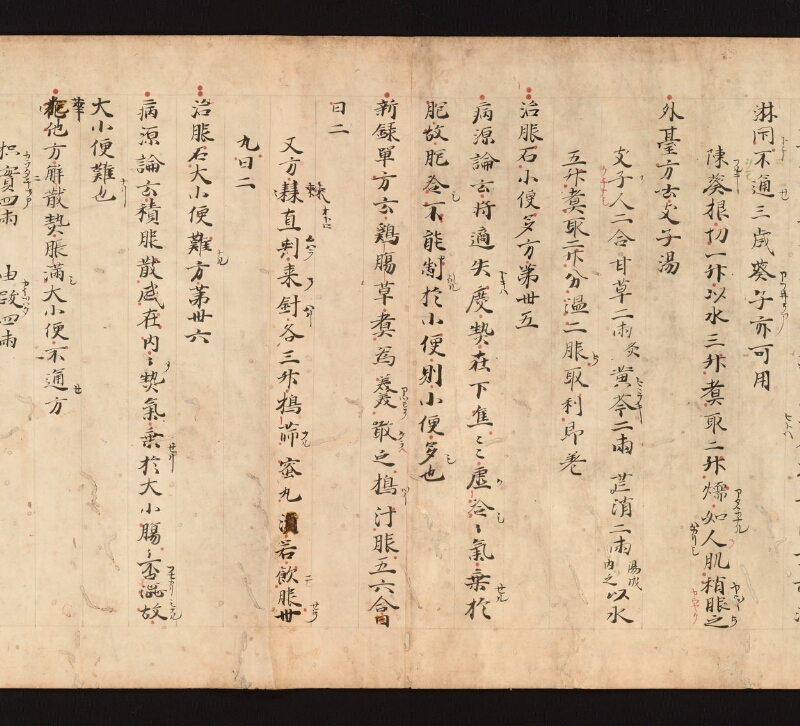 淋閇不通三歲葵子亦可用
陳葵根切一升以水三升煑取二升燸如人肌稍服之
外臺方云支子湯
支子人二合甘草二兩炙黃芩二兩芒消二兩湯成内之以水
五升煑取二升分溫二服取利即差
治服石小便多方第卅五
病源論云將適失度熱在下焦〻虛冷〻氣乗於
胞故胞冷不能制於小便則小便多也
新錄單方云鷄腸草煑爲羹散之搗汁服五六合日
日二
又方棘直判棗針各三升搗篩蜜丸若飲服卅
九日二
治服石大小便難方第卅六
病源論云積服散盛在内〻熱氣乗於大小腸〻否澀故
大小便難也
華他方解散熱服滿大小便不通方
枳實四兩 由跋四兩